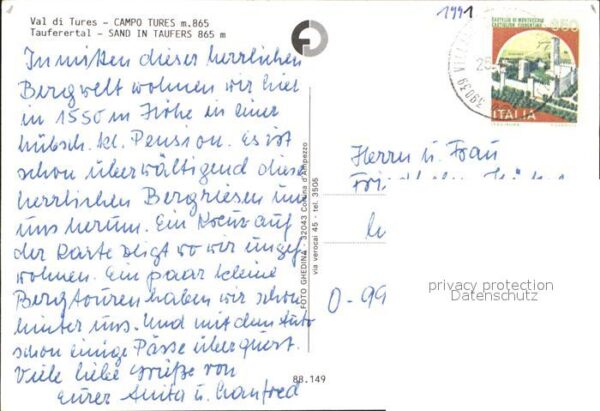 Val di Tures - CAMPO TURES m.865
Tauferertal - SAND IN TAUFERS 865 m
1991
In mitten dieser herrlichen
Bergwelt wohnen wir hier
in 1550 m Höhe in einer
hübsch. kl. Pension. Es ist
schon überwältigend diese
herrlichen Bergriesen um
uns herum. Ein Kreuz auf
der Karte zeigt wo wir ungef.
wohnen. Ein paar kleine
Bergtouren haben wir schon
hinter uns. Und mit dem Auto
schon einige Pässe überquert.
Viele liebe Grüße von
Eurer Anita u. Manfred
FOTO GHEDINA - 32043 Cortina d'Ampezzo
via verocai 45 - tel. 3506
88.149
CASTELLO DI MONTECCHIO
CASTIGLION FIORENTINO
650
ITALIA
39030
25
Herrn u. Frau
D-99
privacy protection
Datenschutz